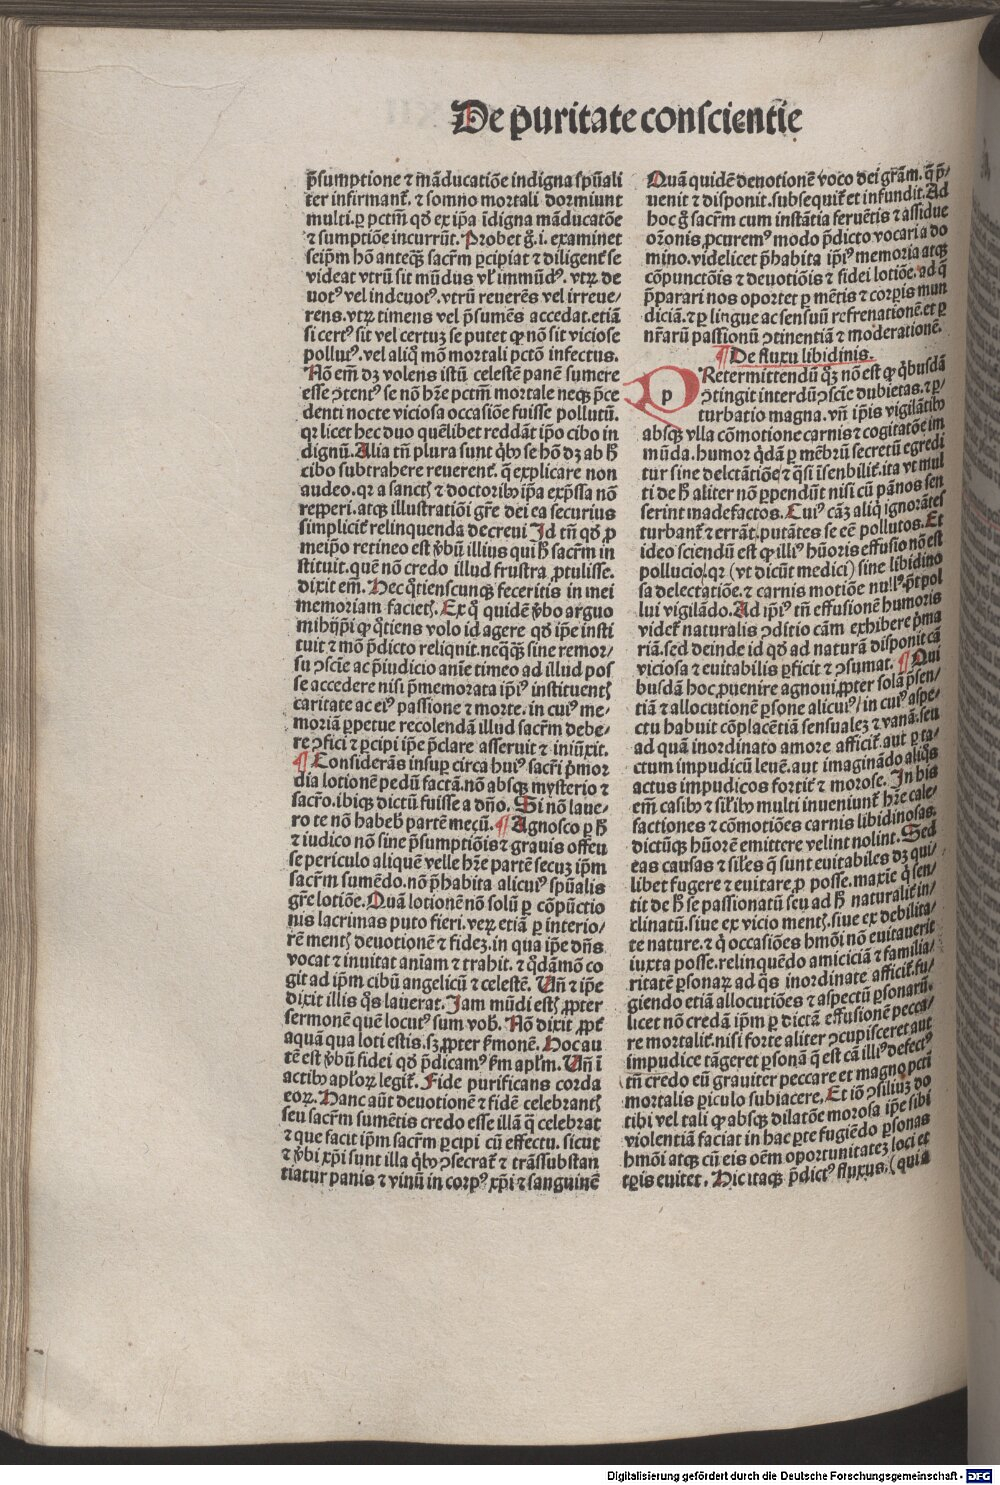 De puritate conscientie
p̄sumptione ⁊ māducatiōe indigna sp̄uali
ter infirmanť. ⁊ somno mortali dormiunt
multi. ꝑ pctm̄ qđ ex ip̄a īdigna māducatōe
⁊ sumptiōe incurrūt. Probet g̊. i. examinet
seip̄m hō anteqꝫ sacrm̄ ꝑcipiat ⁊ diligenť se
videat vtrū sit mūdus vł immūdꝰ. vtꝝ de
uotꝰ vel indeuotꝰ. vtrū reuerēs vel irreue/
rens. vtꝝ timens vel p̄sumēs accedat. etiā
si certꝰ sit vel certuꝫ se putet ꝙ nō sit viciose
pollutꝰ. vel aliq̊ mō mortali pctō infectus.
Nō em̄ dꝫ volens istū celestē panē sumere
esse ↄtentꝰ se nō hr̄e pctm̄ mortale neqꝫ p̄ce
denti nocte viciosa occasiōe fuisse pollutū.
qꝛ licet hec duo quēlibet reddāt ip̄o cibo in
dignū. Alia tn̄ plura sunt q̇bꝰ se hō dꝫ ab ħ
cibo subtrahere reuerenť. q̄ explicare non
audeo. qꝛ a sanctꝭ ⁊ doctoribꝰ ip̄a exp̄ssa nō
repperi. atqꝫ illustratiōi gr̄e dei ea securius
simpliciť relinquenda decreui Id tn̄ qđ ꝓ
meip̄o retineo est ṽbū illius qui ħ sacrm̄ in
stituit. quē nō credo illud frustra ꝓtulisse.
dixit em̄. Hec q̊tienscunqꝫ feceritis in mei
memoriam facietꝭ. Ex q̊ quidē ṽbo arguo
mihijp̄i ꝙ q̊tiens volo id agere qđ ip̄e insti
tuit ⁊ mō p̄dicto reliqnit. neq̄qꝫ sine remor/
su ↄscīe ac p̄iudicio anīe timeo ad illud pos
se accedere nisi p̄memorata ip̄iꝰ instituentꝭ
caritate ac eiꝰ passione ⁊ morte. in cuiꝰ me/
moriā ꝑpetue recolendā illud sacrm̄ debe/
re ↄfici ⁊ ꝑcipi ip̄e p̄clare asseruit ⁊ iniūxit.
¶ Considerās insuꝑ circa huiꝰ sacr̄i p̄mor
dia lotionē pedū factā. nō absqꝫ mysterio ⁊
sacr̄o. ibiqꝫ dictū fuisse a dn̄o. Si nō laue/
ro te nō habeb̄ partē mecū. ¶ Agnosco ꝑ ħ
⁊ iudico nō sine p̄sumptiōis ⁊ grauis offen
se periculo aliquē velle hr̄e partē secuꝫ ip̄m
sacr̄m sumēdo. nō p̄habita alicuiꝰ sp̄ualis
gr̄e lotiōe. Quā lotionē nō solū ꝑ cōpūctio
nis lacrimas puto fieri. veꝝ etiā ꝑ interio/
rē mentꝭ deuotionē ⁊ fideꝫ. in qua ip̄e dn̄s
vocat ⁊ inuitat anīam ⁊ trahit. ⁊ q̊dāmō co
git ad ip̄m cibū angelicū ⁊ celestē. Vn̄ ⁊ ip̄e
dixit illis q̊s lauerat. Iam mūdi estꝭ ꝓpter
sermonē quē locutꝰ sum vob̄. Nō dixit ꝓpť
aquā qua loti estis. sꝫ ꝓpter ẜmonē. Hoc au
tē est ṽbū fidei qđ p̄dicamꝰ ẜm apl̄m. Vn̄ ī
actibꝰ apl̄oꝝ legiť. Fide purificans corda
eoꝝ. Hanc aūt deuotionē ⁊ fidē celebrantꝭ
seu sacr̄m sumētis credo esse illā q̄ celebrat
⁊ que facit ip̄m sacr̄m ꝑcipi cū effectu. sicut
⁊ ṽbi xp̄i sunt illa q̇bꝰ ↄsecrať ⁊ trāssubstan
tiatur panis ⁊ vinū in corpꝰ xp̄i ⁊ sanguinē
Quā quidē deuotionē voco dei gr̄am. q̄ p̄/
uenit ⁊ disponit. subsequiť et infundit. Ad
hoc g̊ sacr̄m cum instātia feruētis ⁊ assidue
or̄onis ꝓcuremꝰ modo p̄dicto vocari a do
mino. videlicet p̄habita ip̄iꝰ memoria atqꝫ
cōpunctōis ⁊ deuotiōis ⁊ fidei lotiōe. ad q̄
p̄parari nos oportet ꝑ mētis ⁊ corꝑis mun
diciā. ⁊ ꝑ lingue ac sensuū refrenationē. et ꝑ
nr̄arū passionū ↄtinentiā ⁊ moderationē.
¶ De fluxu libidinis.
PRetermittendū q̊ꝫ nō est ꝙ q̇busdā
ↄtingit interdū ↄscīe dubietas. ⁊ ꝑ/
turbatio magna. vn̄ ip̄is vigilātibꝰ
absqꝫ vlla cōmotione carnis ⁊ cogitatōe im
mūda. humor q̇dā ꝑ mēbrū secretū egredi
tur sine delctātiōe ⁊ q̄si īsenbiliť. ita vt mul
ti de ħ aliter nō ꝑpendūt nisi cū pānos sen
serint madefactos. Cuiꝰ cāꝫ aliq̇ ignorātes
turbanť ⁊ errāt. putātes se eē pollutos. Et
ideo sciendū est ꝙ illiꝰ hūoris effusio nō est
pollucio. qꝛ (vt dicūt medici) sine libidino
sa delectatiōe. ⁊ carnis motiōe nullꝰ pōt pol
lui vigilādo. Ad ip̄iꝰ tn̄ effusionē humoris
videť naturalis ↄditio cām exhibere p̄ma
riā. sed deinde id qđ ad naturā disponit cā
viciosa ⁊ euitabilis ꝑficit ⁊ ↄsumat. ¶ Qui
busdā hoc ꝓuenire agnoui ꝓpter solā p̄sen/
tiā ⁊ allocutionē ꝑsone alicuiꝰ/ in cuiꝰ aspe/
ctu habuit cōplacētiā sensualeꝫ ⁊ vanā. seu
ad quā inordinato amore afficiť. aut ꝑ ta/
ctum impudicū leuē. aut imaginādo aliq̊s
actus impudicos fortiť ⁊ morose. In his
em̄ casibꝰ ⁊ sil̄ibꝰ multi inueniunť hr̄e cale/
factiones ⁊ cōmotiōes carnis libidinosas.
dictūqꝫ hūorē emittere velint nolint. Sed
eas causas ⁊ sil̄es q̄ sunt euitabiles dꝫ qui/
libet fugere ⁊ euitare ꝓ posse. maxīe q̇ sen/
tit de ħ se passionatū seu ad ħ naturaliť in/
clinatū. siue ex vicio mentꝭ. siue ex debilita/
te nature. ⁊ q̇ occasiōes hmōi nō euitauerit
iuxta posse. relinquēdo amiciciā ⁊ familia/
ritatē ꝑsonaꝝ ad q̄s inordinate afficiť. fu/
giendo etiā allocutiōes ⁊ aspectū ꝑsonarū.
licet nō credā ip̄m ꝑ dictā effusionē pecca/
re mortaliť. nisi forte aliter ↄcupisceret aut
impudice tāgeret ꝑsonā q̄ est cā illiꝰ defectꝰ
tn̄ credo eū grauiter peccare et magno pctī
mortalis ꝑiculo subiacere. Et iō ↄsiliuꝫ do
tibi vel tali ꝙ absqꝫ dilatōe morosa ip̄e sibi
violentiā faciat in hac ꝑte fugiēdo ꝑsonas
hmōi atqꝫ cū eis oēm oportunitateꝫ loci et
tꝑis euitet. Hic itaqꝫ p̄dictꝰ fluxus. (quia
Digitalisierung gefördert durch die Deutsche Forschungsgemeinschaft - DFG